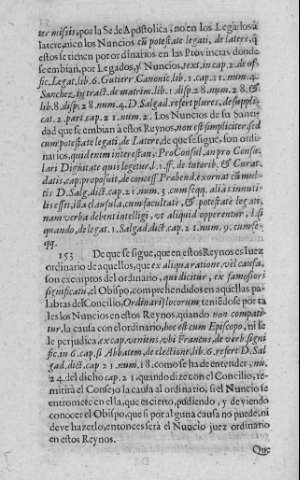 ter missis, por la Se de Apostolica; no en los Legados à
latere, ni en los Nuncios cũ potestate legati, de latere, q̃
estos se tienen por ordinarios en las Provincias donde
se embian, por Legados, y Nuncios, text. in cap. 2. de of-
fic. Legat. lib. 6. Gutierr. Canonic. lib. 1. cap. 21. num. 4.
Sanchez, in tract. de matrim. lib. 1. disp. 28. num. 28. &
lib. 8. disp. 28. num. 4. D. Salgad. refert plures, de supplic.
cat. 2. part. cap. 21. num. 2. Los Nuncios de su Santi-
dad que se embian à estos Reynos, non est simpliciter, sed
cum potestate legati, de Latere, de que se sigue, son ordi-
narios, quid enim interest an, ProConsul, an pro Consu-
lari Dignitate quis legetur, l. ff. de tutorib. & Curat.
datis, cap. proposuit, de concess. Prabend. exornat cũ mul-
tis D. Salg. dict. cap. 21. num. 3. cum seqq. alias inuti-
lis esset, illa clausula, cum facultate, & potestate legati,
nam verba debent intelligi, ut aliquid opperentur, l. si
quando, de legat. 1. Salgad. dict. cap. 21. num. 9. cum se-
qq.
153 De que se sigue, que en estos Reynos es Iuez
ordinario de aquellos, que ex aliqua ratione, vel causa,
son exemptos del ordinario, qui dicitur, ex famosiori
significatu, el Obispo, comprehendidos en aquellas pa-
labras del Concilio, Ordinarij locorum teniẽdose por ta
les los Nuncios en estos Reynos, quando non compati-
tur, la causa con el ordinario, hoc est cum Episcopo, ni se
le perjudica, ex cap. veniens, ubi Franens, de verb. signi-
fic. in 6. cap. si Abbatem, de electione, lib. 6. refert D. Sal
gad. dict. cap. 21. num. 18. como se ha de entender, nu.
24. del dicho cap. 21. quando dize con el Concilio, re-
mitirà el Consejo la causa al ordinario, si el Nuncio se
entromete en ella, que es cierto, pudiendo, y deviendo
conocer el Obispo, que si por alguna causa no puede, ni
deve hazerlo, entonces serà el Nuncio juez ordinario
en estos Reynos.
Que